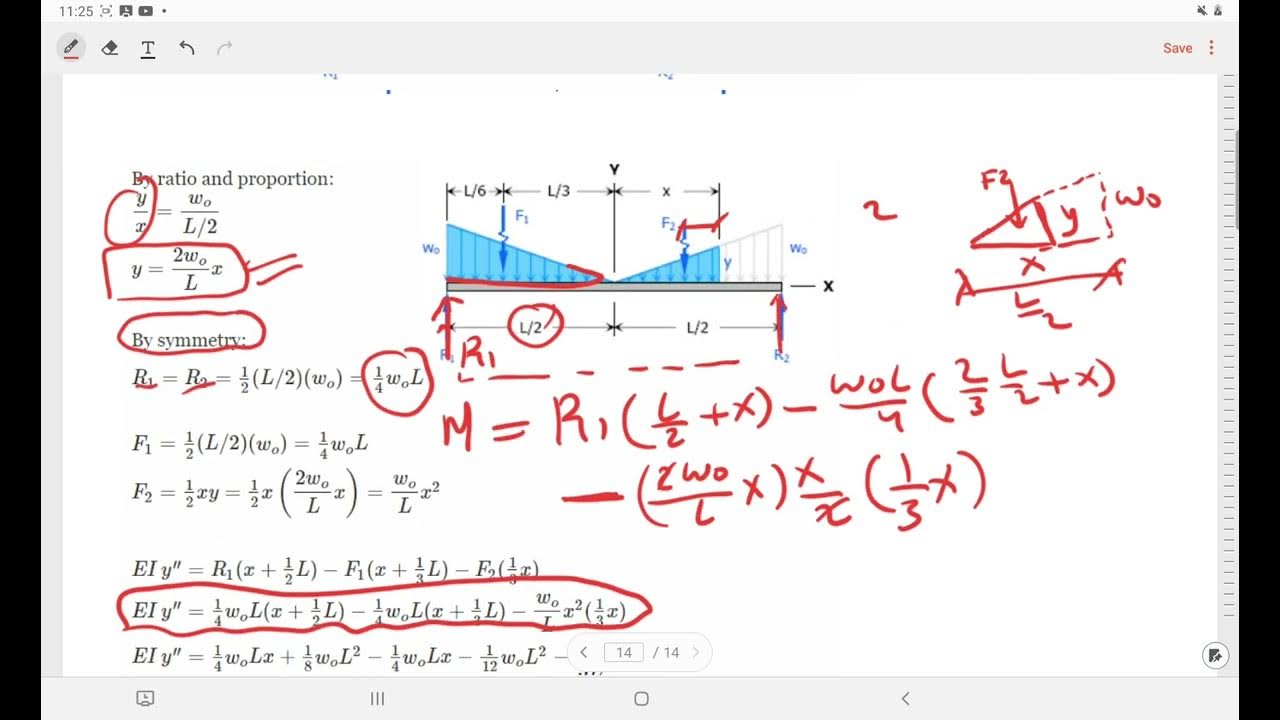 11:25
Save
R₁ R₂
By ratio and proportion:
y/x = wₒ/(L/2)
y = (2wₒ/L)x
By symmetry:
R₁ = R₂ = ½(L/2)(wₒ) = ¼wₒL
F₁ = ½(L/2)(wₒ) = ¼wₒL
F₂ = ½xy = ½x(2wₒ/L x) = wₒ/L x²
EI y″ = R₁(x + ½L) − F₁(x + ⅓L) − F₂(⅓x)
EI y″ = ¼wₒL(x + ½L) − ¼wₒL(x + ⅓L) − wₒ/L x²(⅓x)
EI y″ = ¼wₒLx + ⅛wₒL² − ¼wₒLx − 1/12 wₒL² −
Y
L/6 L/3 x
F₁ F₂
Wₒ y Wₒ
X
L/2 L/2
R₁ R₂
R₁
M = R₁(L/2 + x) − woL/4 (2/3 L/2 + x)
− (2wo/L x) x/2 (1/3 x)
2
F2
y wo
x
L/2
14 / 14